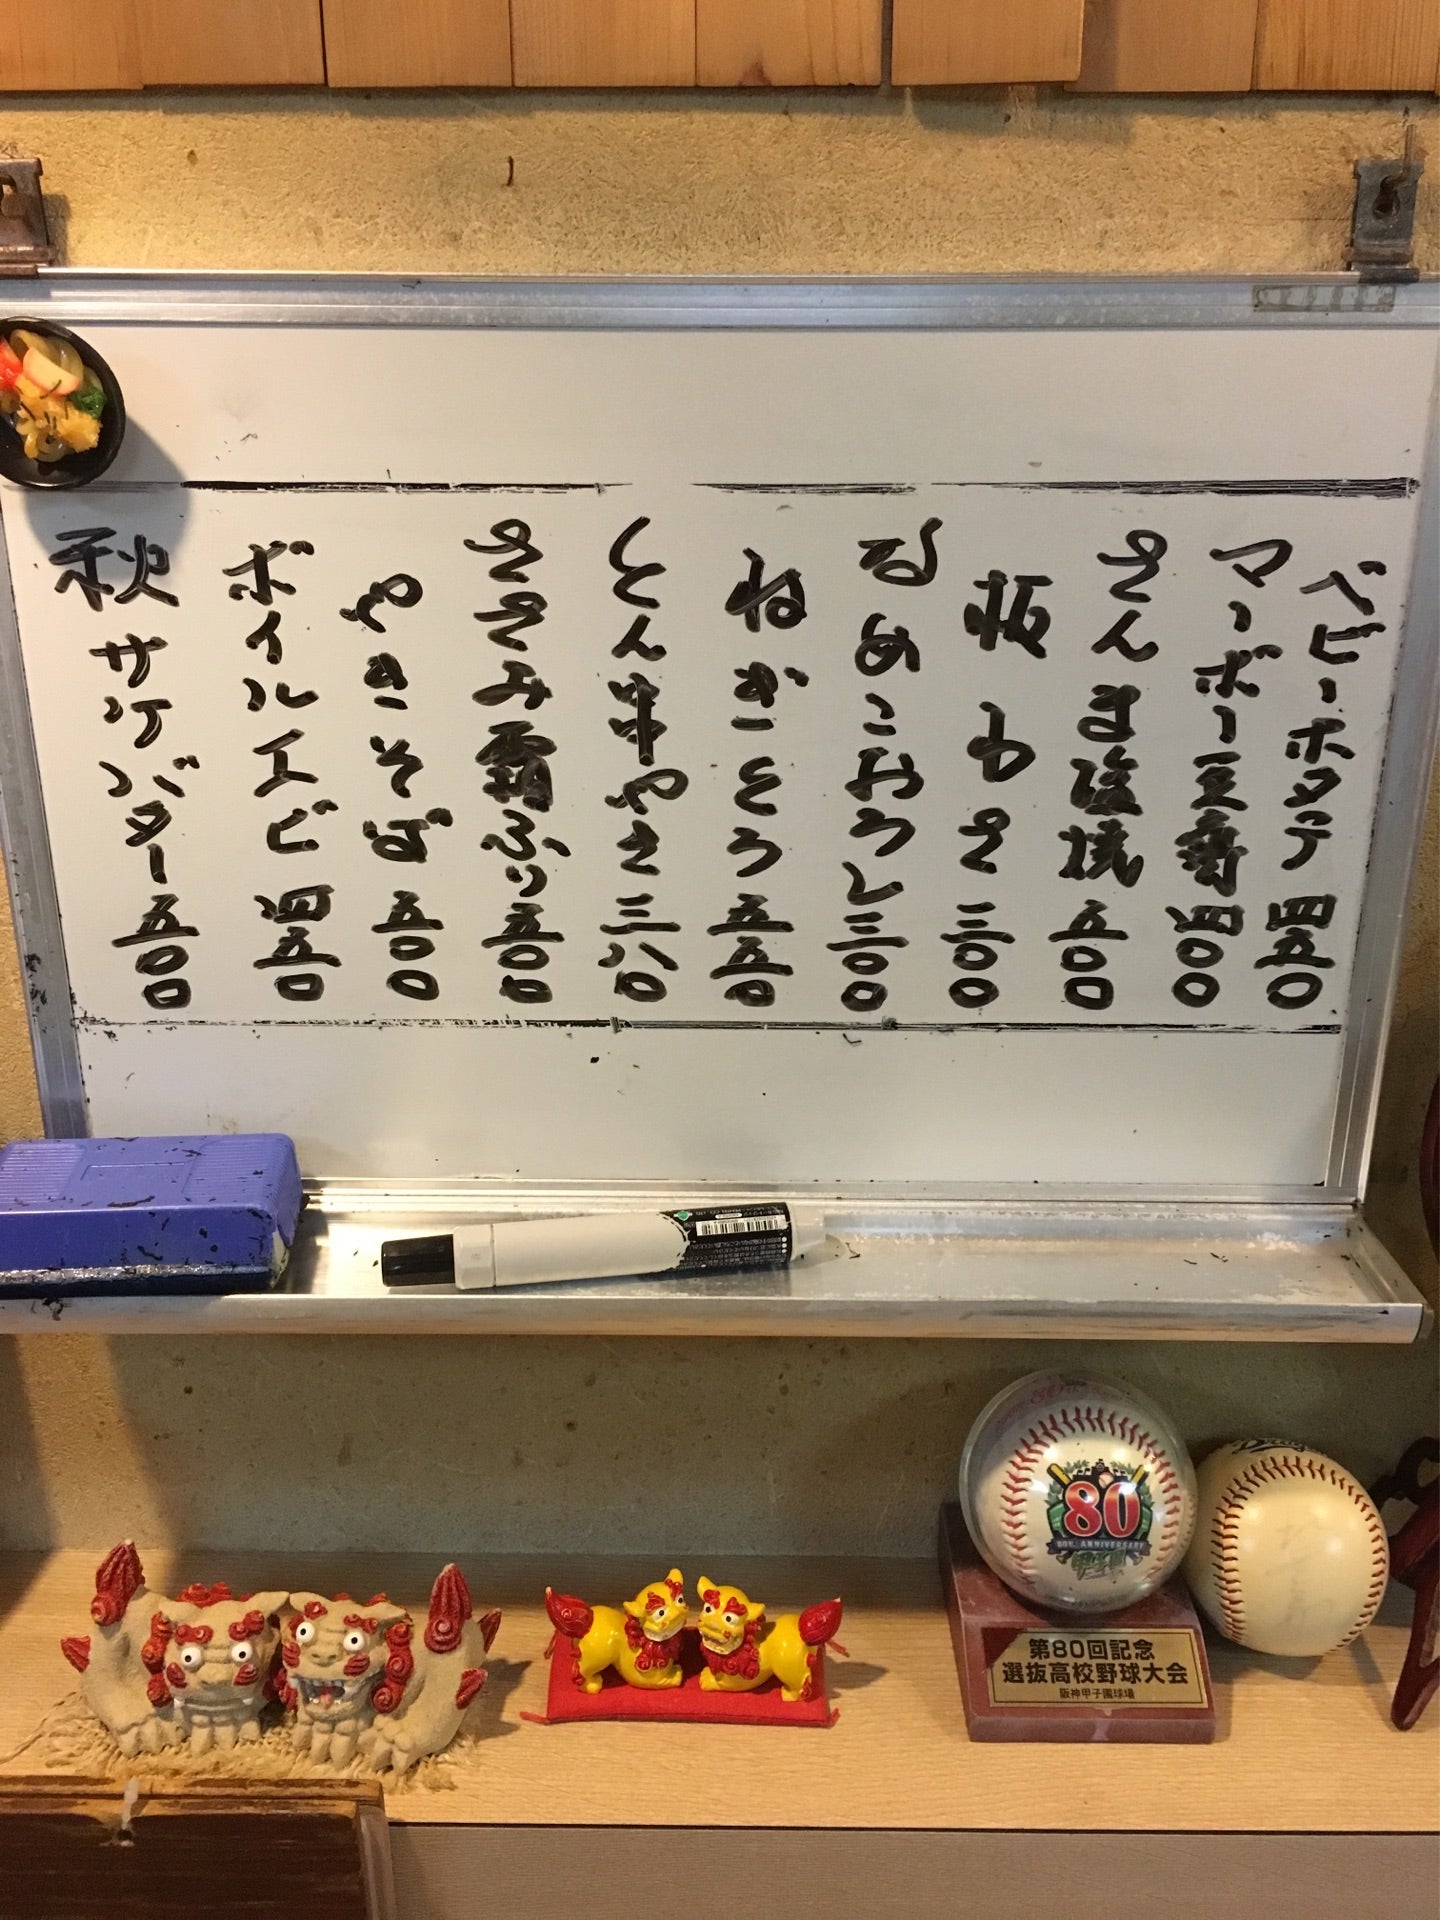 ベビーホタテ 四五〇
マーボー豆腐 四〇〇
さんま塩焼 五〇〇
板わさ 三〇〇
なめこおろし 三〇〇
ねぎとろ 五五〇
とん串やき 三八〇
ささみ霜ふり 五〇〇
やきそば 五〇〇
ボイルエビ 四五〇
秋サケバター 五〇〇
80
80th ANNIVERSARY
甲子園
第80回記念
選抜高校野球大会
阪神甲子園球場